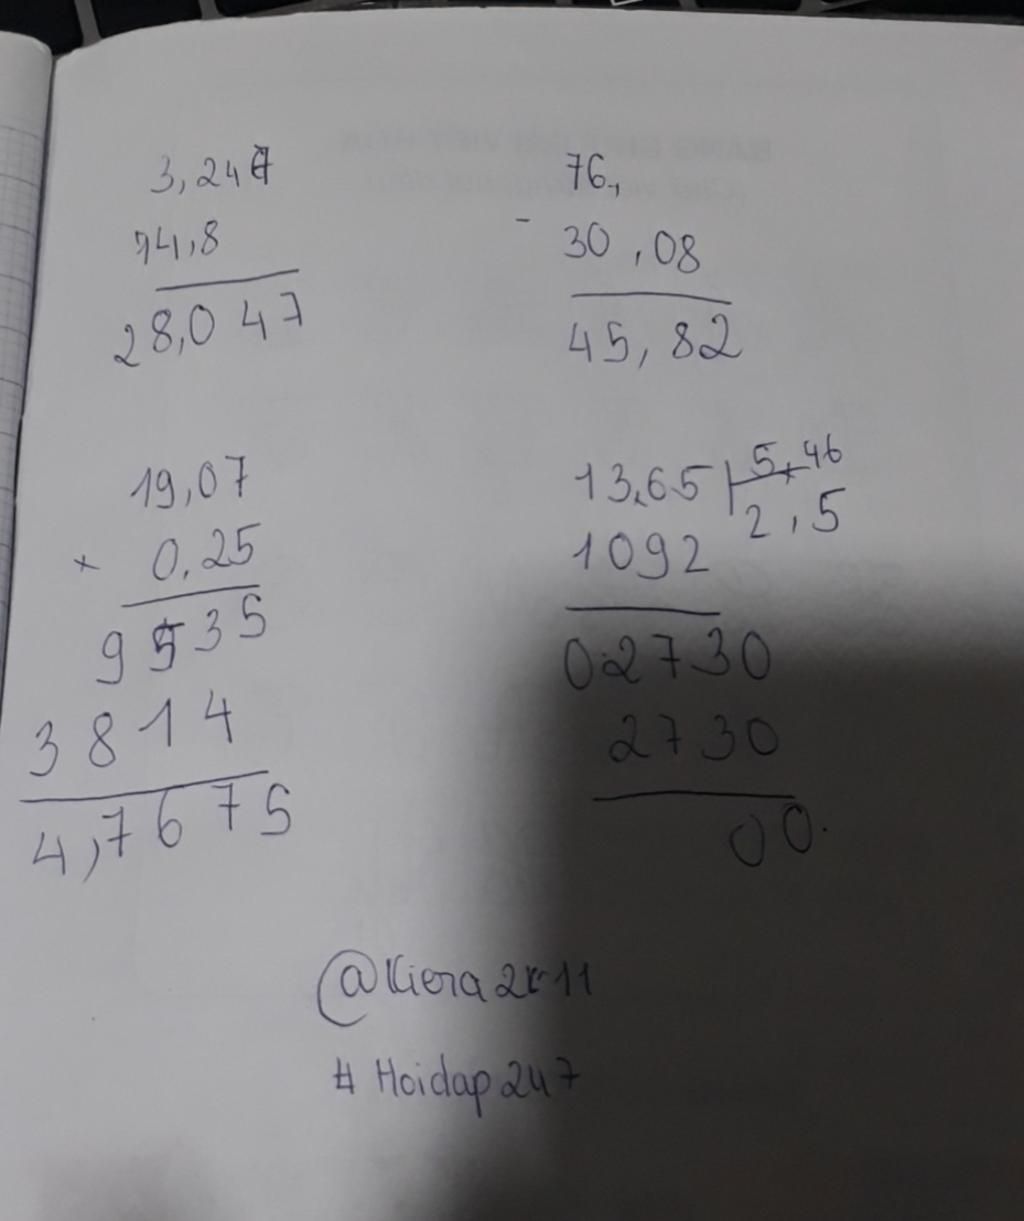 3,247
74,8
28,047
76,
-
30,08
45,82
19,07
× 0,25
9535
3814
4,7675
13,65 5,46
1092 2,5
02730
2730
00.
@Kiera2k11
# Hoidap247